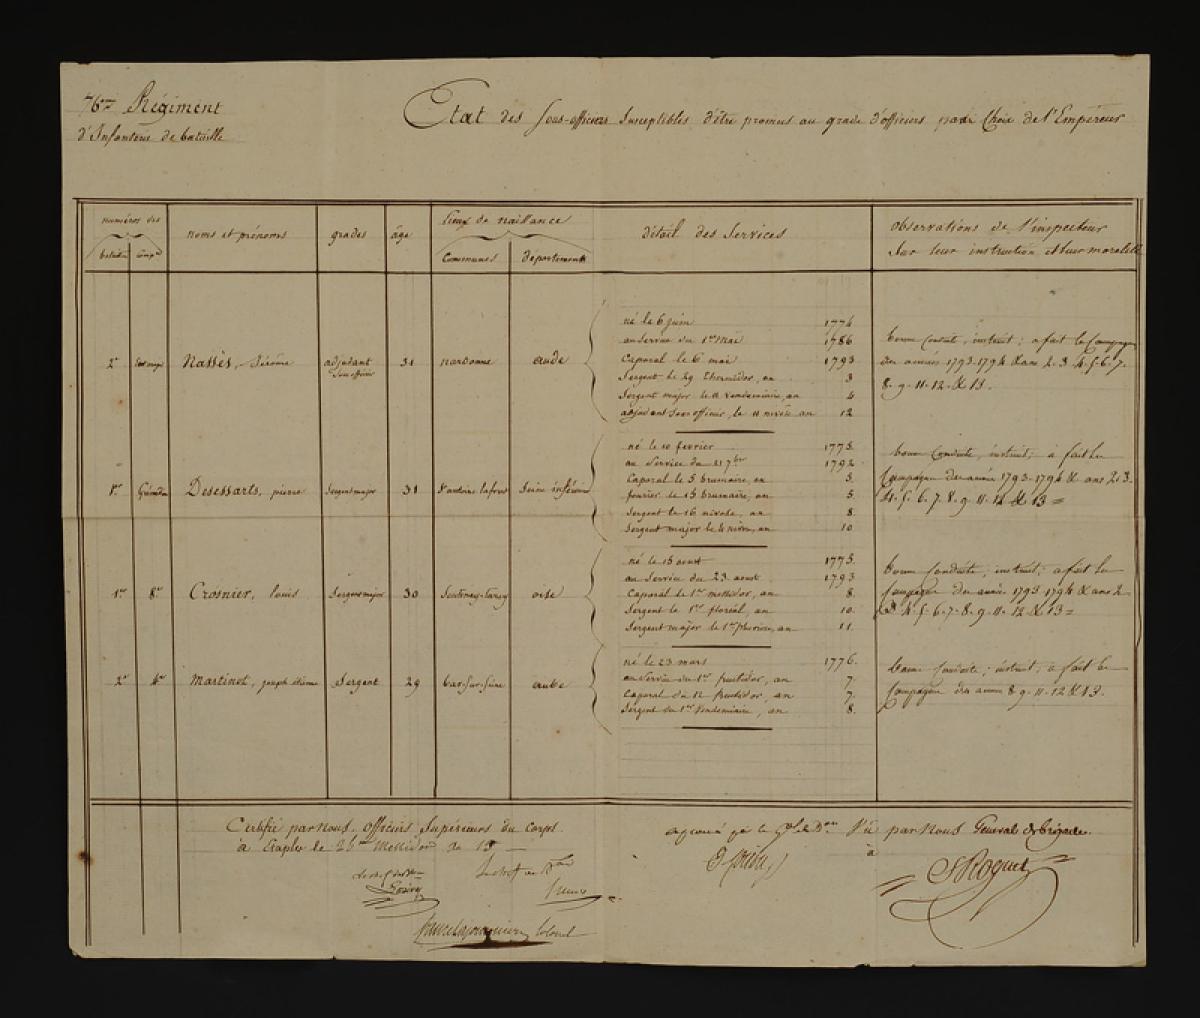 76me Régiment
d'Infanterie de bataille
Etat des Sous-officiers Susceptibles d'être promus au grade d'officiers par Choix de l'Empereur
numéros des
noms et prénoms
grades
âge
lieux de naissance
détail des Services
observations de l'inspecteur
Sur leur instruction et leur moralité
bataillon
Comp.
Communes
départements
2e
Nassès, Jérôme
adjudant
Sous officier
31
narbonne
aude
né le 6 juin 1774
au Service du 1er Mai 1786
Caporal le 6 mai 1793
Sergent le 29 thermidor, an 3
Sergent major le 11 Vendemiaire, an 4
adjudant Sous officier, le 11 nivôse an 12
bonne Conduite, instruit; a fait la Campagne
des années 1793-1794 & ans 2-3-4-5-6-7-
8-9-11-12 & 13.
1er
Desessarts, pierre
Sergent major
31
Seine inférieure
né le 10 fevrier 1775.
au Service du 21 7bre 1792
Caporal le 5 brumaire, an 5.
fourier le 15 brumaire, an 5.
Sergent le 16 nivose, an 8.
Sergent major le 4 nivose, an 10.
bonne Conduite, instruit; à fait les
Campagnes des années 1793-1794 & ans 2-3-
4-5-6-7-8-9-11-12 & 13 =
1er
8e
Crosnier, louis
Sergent major
30
oise
né le 15 aout 1775.
au Service du 23 aout 1793
Caporal le 1er messidor, an 8.
Sergent le 1er floréal, an 10.
Sergent major le 1er pluviose, an 11.
bonne Conduite, instruit; a fait les
Campagnes des années 1793-1794 & ans 2-
3-4-5-6-7-8-9-11-12 & 13 =
2e
4e
Martinot, joseph étienne
Sergent
29
bar-sur-Seine
aube
né le 23 mars 1776.
au Service du 1er fructidor, an 7.
Caporal du 12 fructidor, an 7.
Sergent du 1er Vendemiaire, an 8.
bonne Conduite; instruit, a fait les
Campagnes des années 8-9-11-12 & 13.
Certifié par nous officiers Supérieurs du Corps.
à Etaples le 26 Messidor an 13
Colonel
Vu par nous Général de brigade
à
Roguet